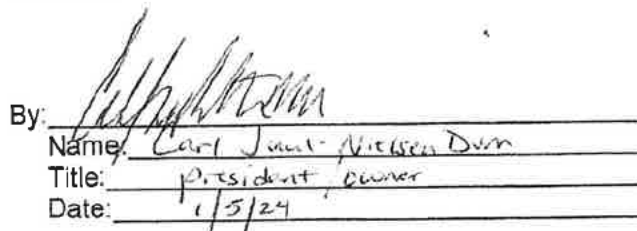 By:
Name: Carl Nielsen Dunn
Title: president / owner
Date: 1/5/24